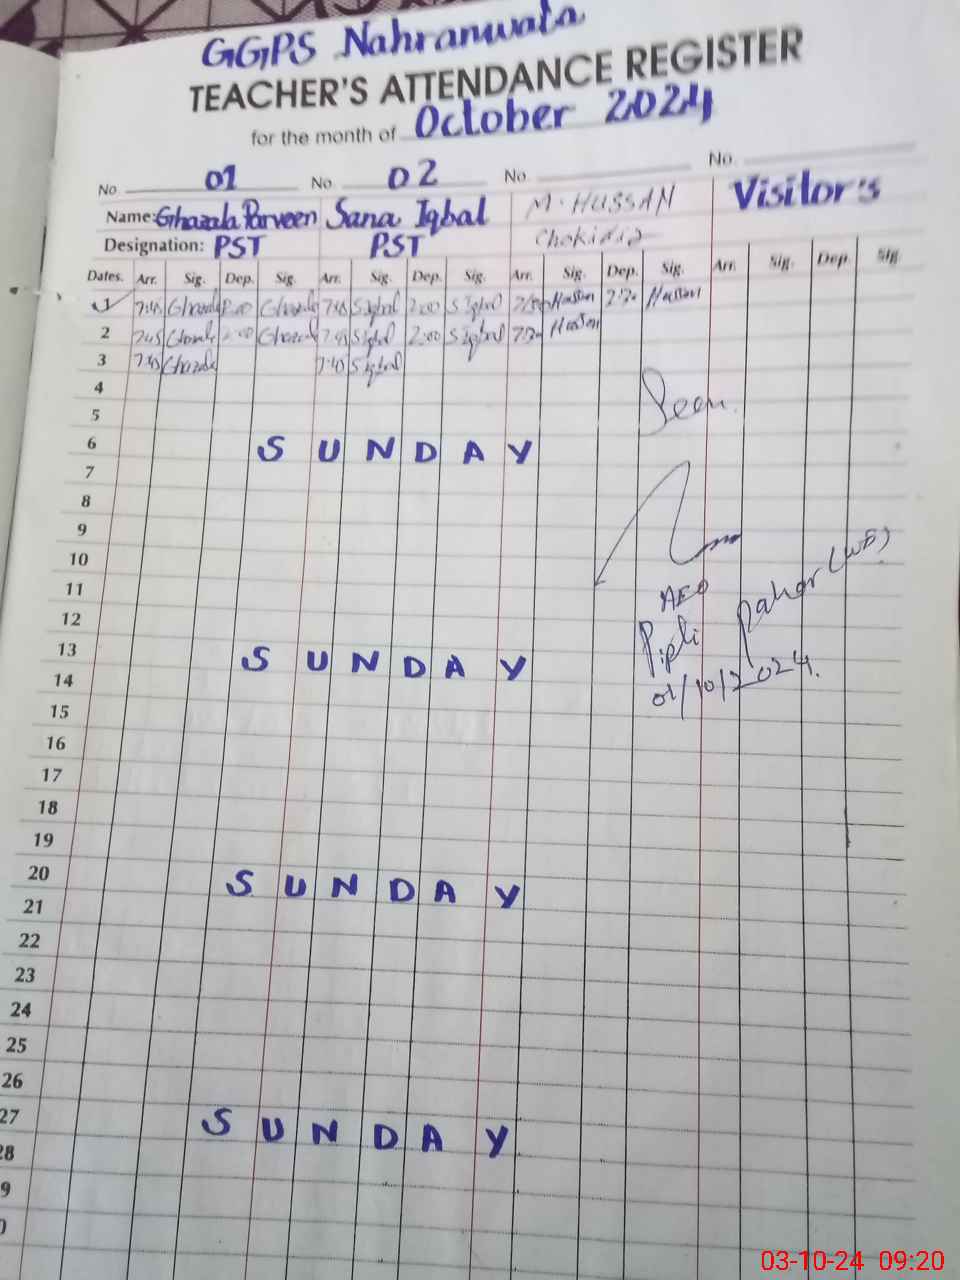 GGPS Nahranwala
TEACHER'S ATTENDANCE REGISTER
for the month of October 2024
No 01 No 02 No. No.
Name: Ghazala Parveen Sana Iqbal M. HUSSAN Visitor's
Designation: PST PST Chokidia
Dates. Arr. Sig. Dep. Sig. Arr. Sig. Dep. Sig. Arr. Sig. Dep. Sig. Arr. Sig. Dep. Sig.
1 7:45 Ghazala 2:00 Ghazala 7:45 S Iqbal 2:00 S Iqbal Hassan Hassan
2 7:45 Ghazala 2:00 Ghazala 7:45 S Iqbal 2:00 S Iqbal Hassan
3 7:45 Ghazala 7:45 S Iqbal
4
Seen.
5
6 SUNDAY
7
8
9
10
11
AEO
12
Pipli Pahar (WB)
13 SUNDAY
14
01/10/2024.
15
16
17
18
19
20 SUNDAY
21
22
23
24
25
26
27 SUNDAY
28
9
0
03-10-24 09:20